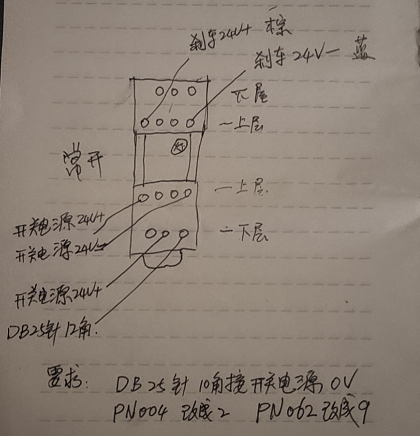 刹车24V+ 棕
刹车24V- 蓝
下层
上层
常开
上层
开关电源24V+
开关电源24V-
下层
开关电源24V+
DB25针12角
要求: DB25针10角接开关电源0V
PN004 改成2 PN062改成9